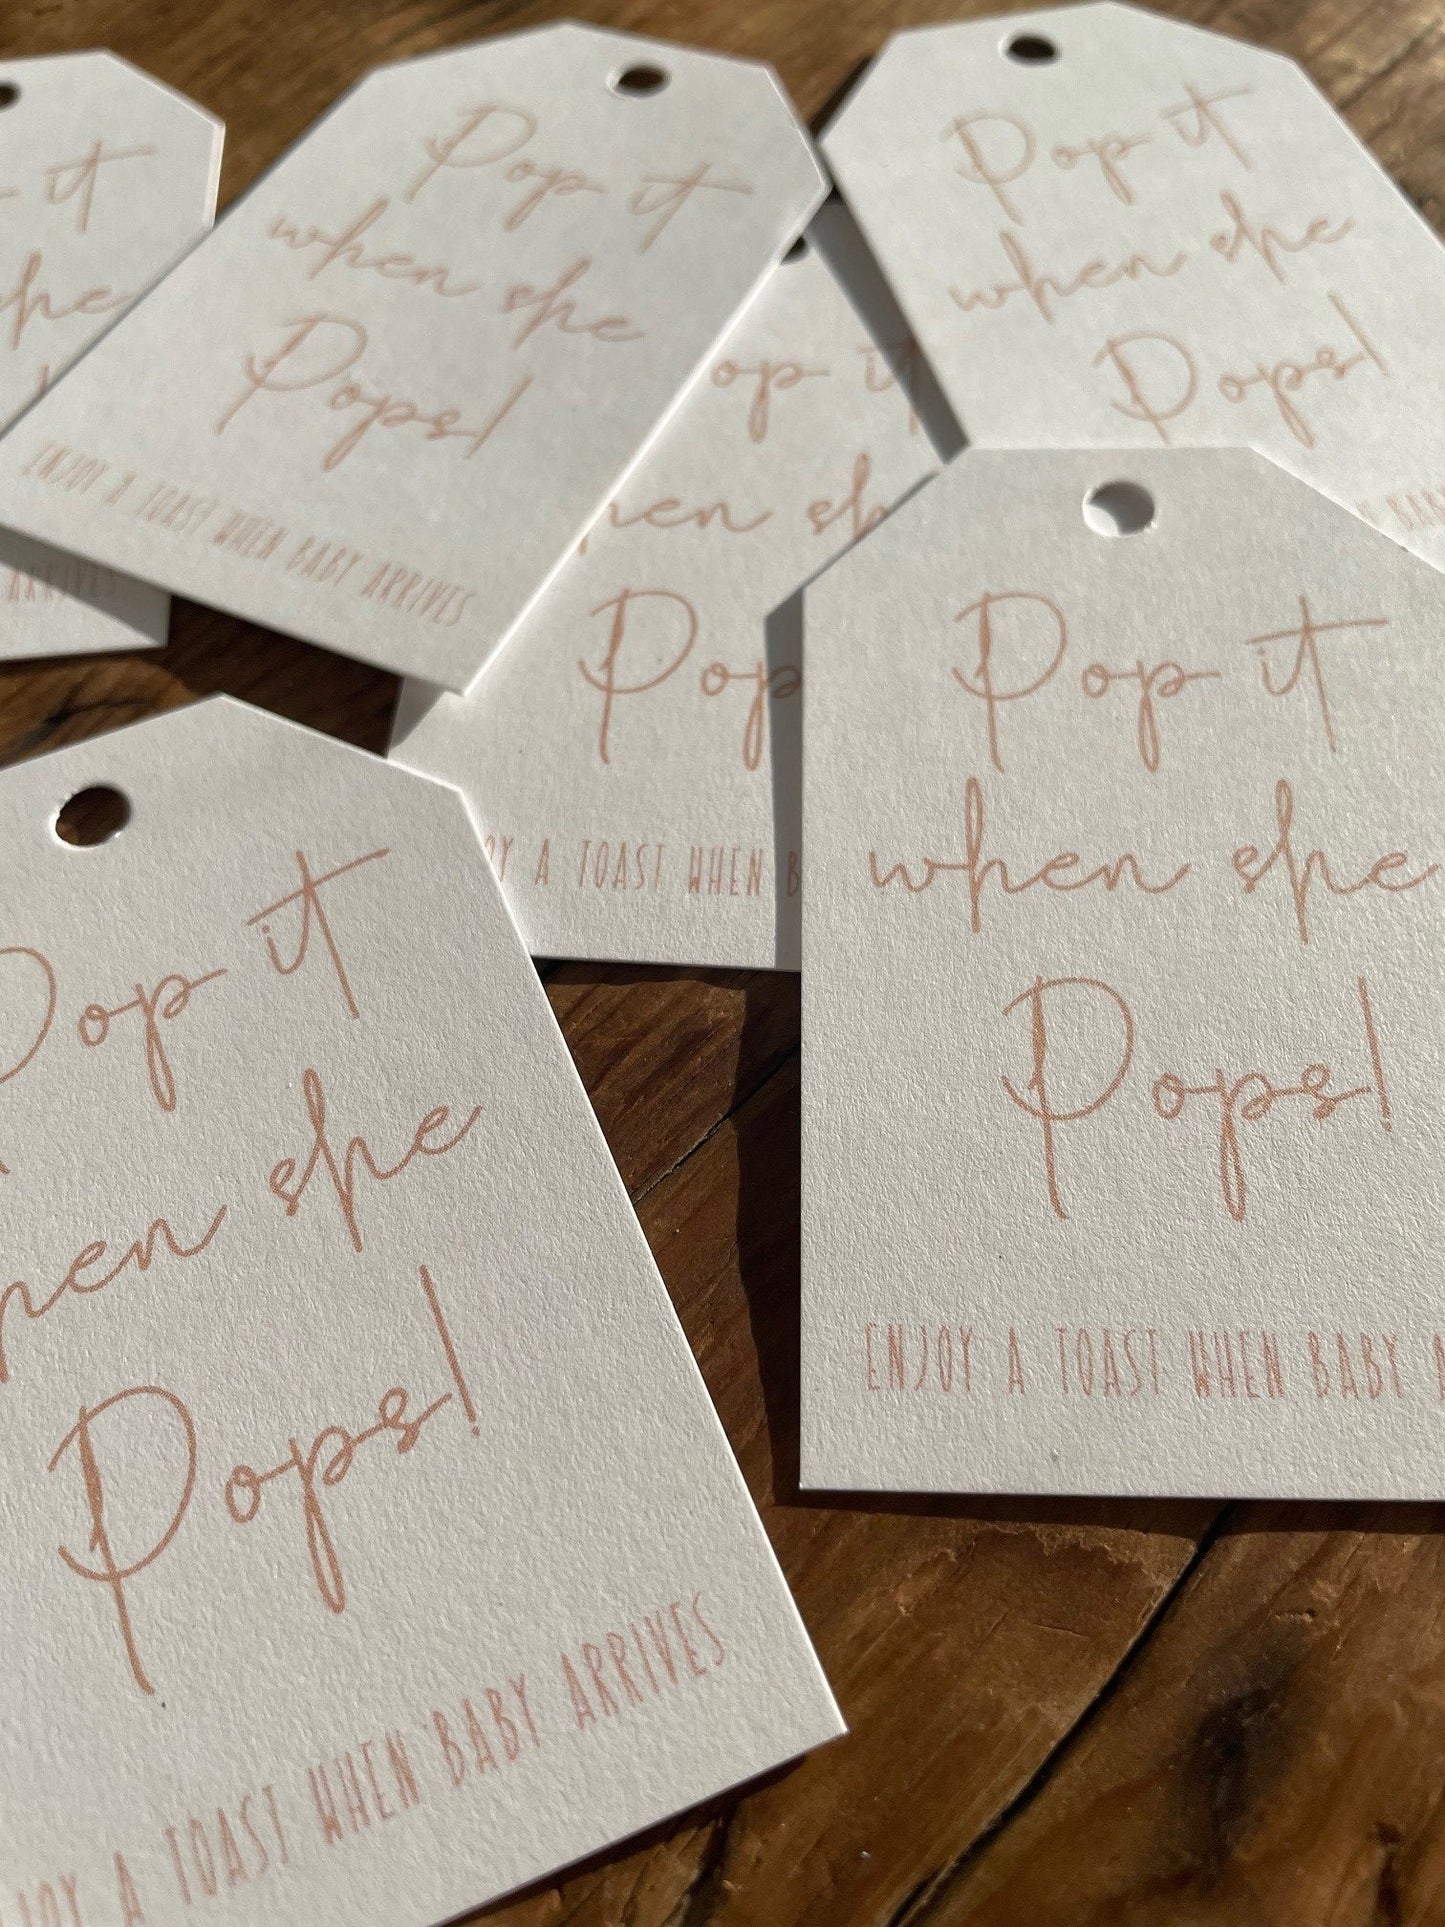 it
she
ARRIVES
Pop it
when she
Pops!
ENJOY A TOAST WHEN BABY ARRIVES
Pop it
when she
Pops!
BABY
op it
hen sh
Pop
OY A TOAST WHEN B
Pop it
when she
Pops!
ENJOY A TOAST WHEN BABY
Pop it
hen she
Pops!
JOY A TOAST WHEN BABY ARRIVES